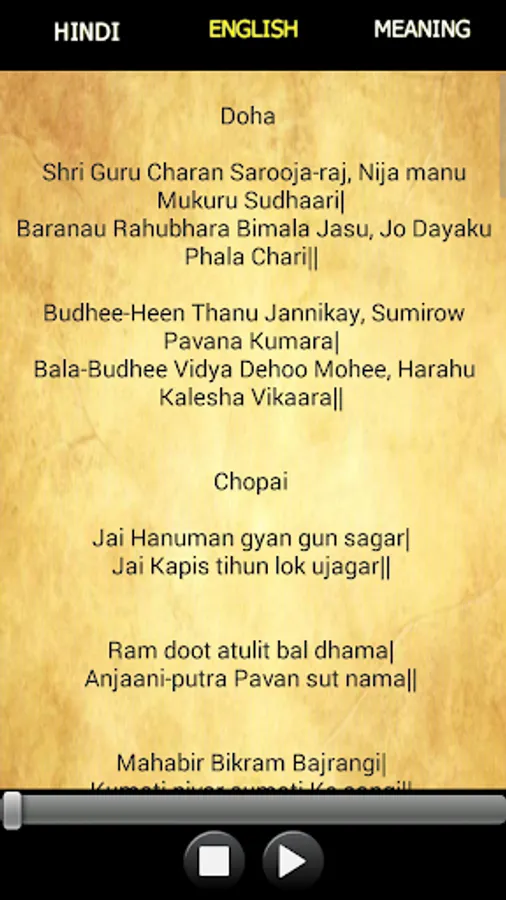 HINDI ENGLISH MEANING
Doha
Shri Guru Charan Sarooja-raj, Nija manu
Mukuru Sudhaari|
Baranau Rahubhara Bimala Jasu, Jo Dayaku
Phala Chari||
Budhee-Heen Thanu Jannikay, Sumirow
Pavana Kumara|
Bala-Budhee Vidya Dehoo Mohee, Harahu
Kalesha Vikaara||
Chopai
Jai Hanuman gyan gun sagar|
Jai Kapis tihun lok ujagar||
Ram doot atulit bal dhama|
Anjaani-putra Pavan sut nama||
Mahabir Bikram Bajrangi|